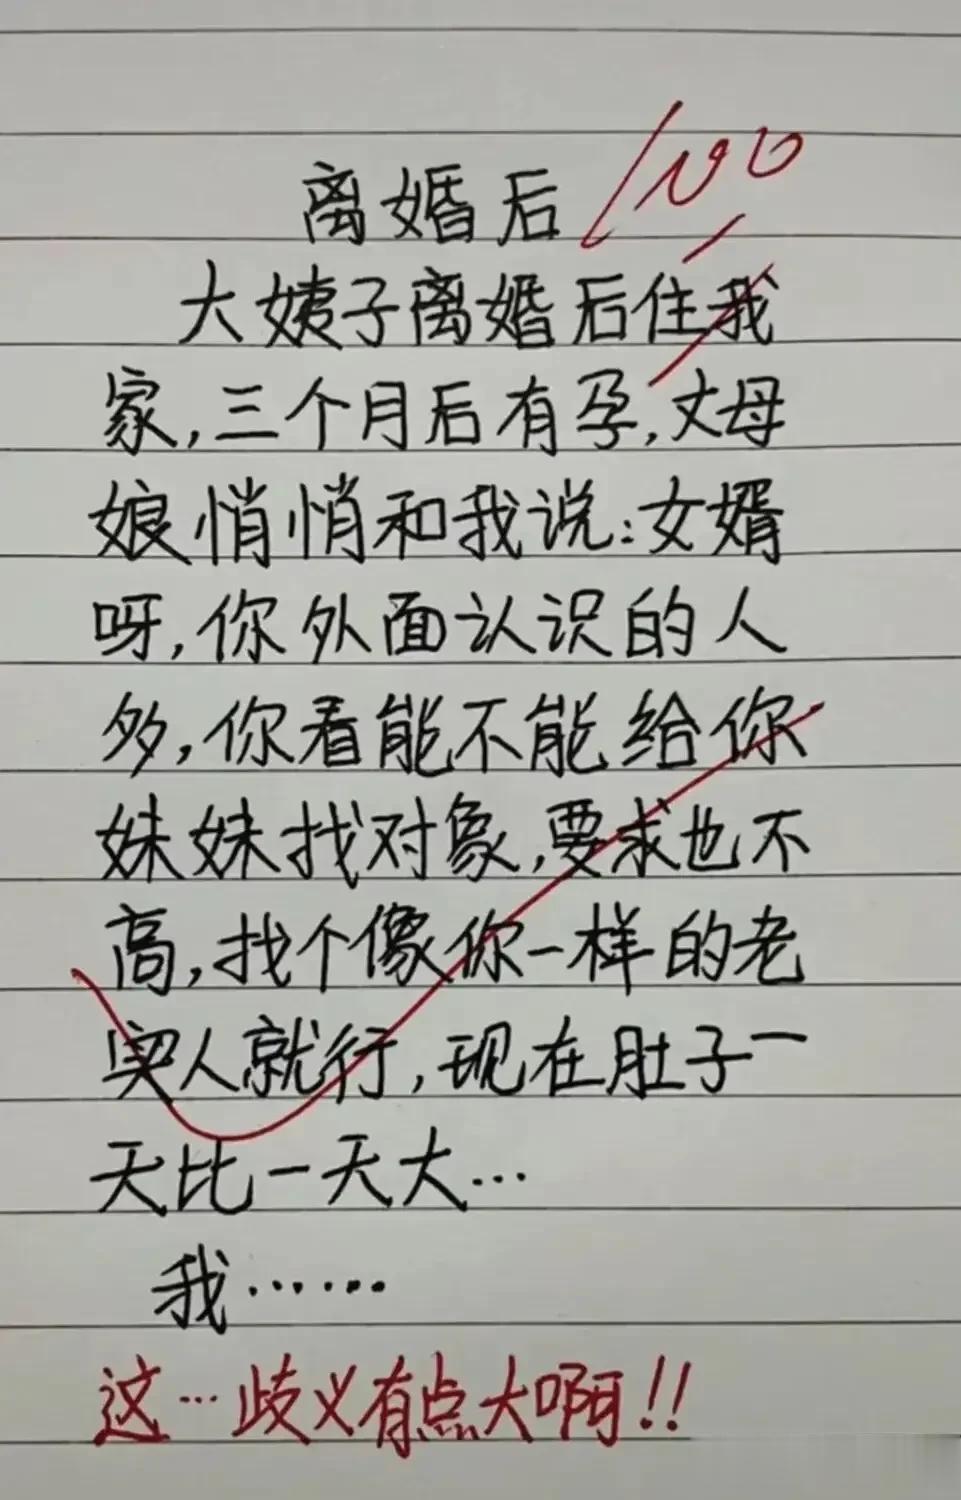 离婚后 100
大姨子离婚后住我
家,三个月后有孕,丈母
娘悄悄和我说:女婿
呀,你外面认识的人
多,你看能不能给你
妹妹找对象,要求也不
高,找个像你一样的老
实人就行,现在肚子一
天比一天大…
我……
这…歧义有点大啊!!